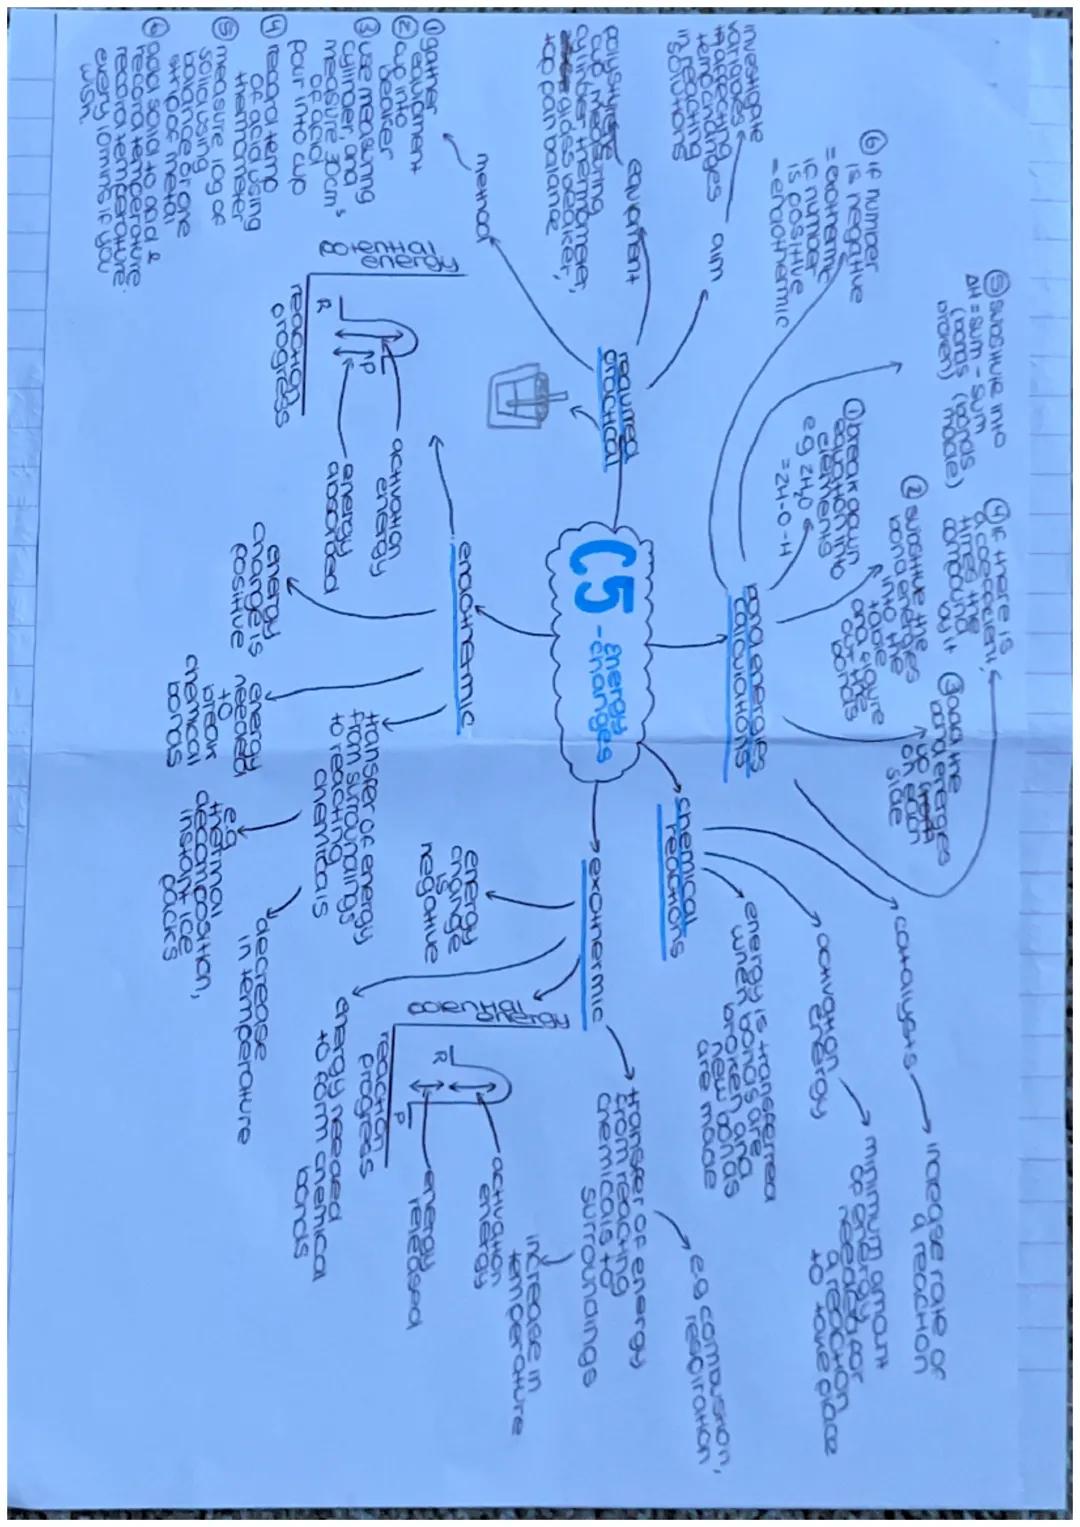 C5 - energy
changes
required
practical
aim
investigate
variables
that affecting
temp changes
in reacting
solutions
equipment
polystyrene
cup, measuring
cylinder thermometer,
glass beaker,
top pan balance
method
① gather
equipment
② cup into
beaker
③ use measuring
cylinder, and
measure 30cm³
of acid
pour into cup
④ record temp
of acid using
thermometer
⑤ measure 10g of
solid using
balance or one
strip of metal
⑥ add solid to acid &
record temperature.
record temperature
every 10mins if you
wish.
bond energies
calculations
① break down
equation into
elements
e.g 2H₂O
= 2H-O-H
② substitute the
bond energies
into the
table
and figure
out the
bonds
③ add the
bond energies
up
on each
side
④ If there is
a coefficient,
times the
compound
by it
⑤ substitute into
ΔH = sum - sum
(bonds (bonds
broken) made)
⑥ if number
is negative
= exothermic
if number
is positive
- endothermic
chemical
reactions
catalysts
increase rate of
a reaction
activation
energy
minimum amount
of energy
needed for
a reaction
to take place
energy is transferred
when bonds are
broken and
new bonds
are made
exothermic
transfer of energy
from reacting
chemicals to
surroundings
e.g combustion,
respiration
increase in
temperature
energy
change
is
negative
energy needed
to form chemical
bonds
reaction
progress
R
P
activation
energy
energy
released
endothermic
potential
energy
reaction
progress
R
P
activation
energy
energy
absorbed
energy
change is
positive
energy
needed
to
break
chemical
bonds
transfer of energy
from surroundings
to reacting
chemicals
e.g
thermal
decomposition,
instant ice
packs
decrease
in temperature